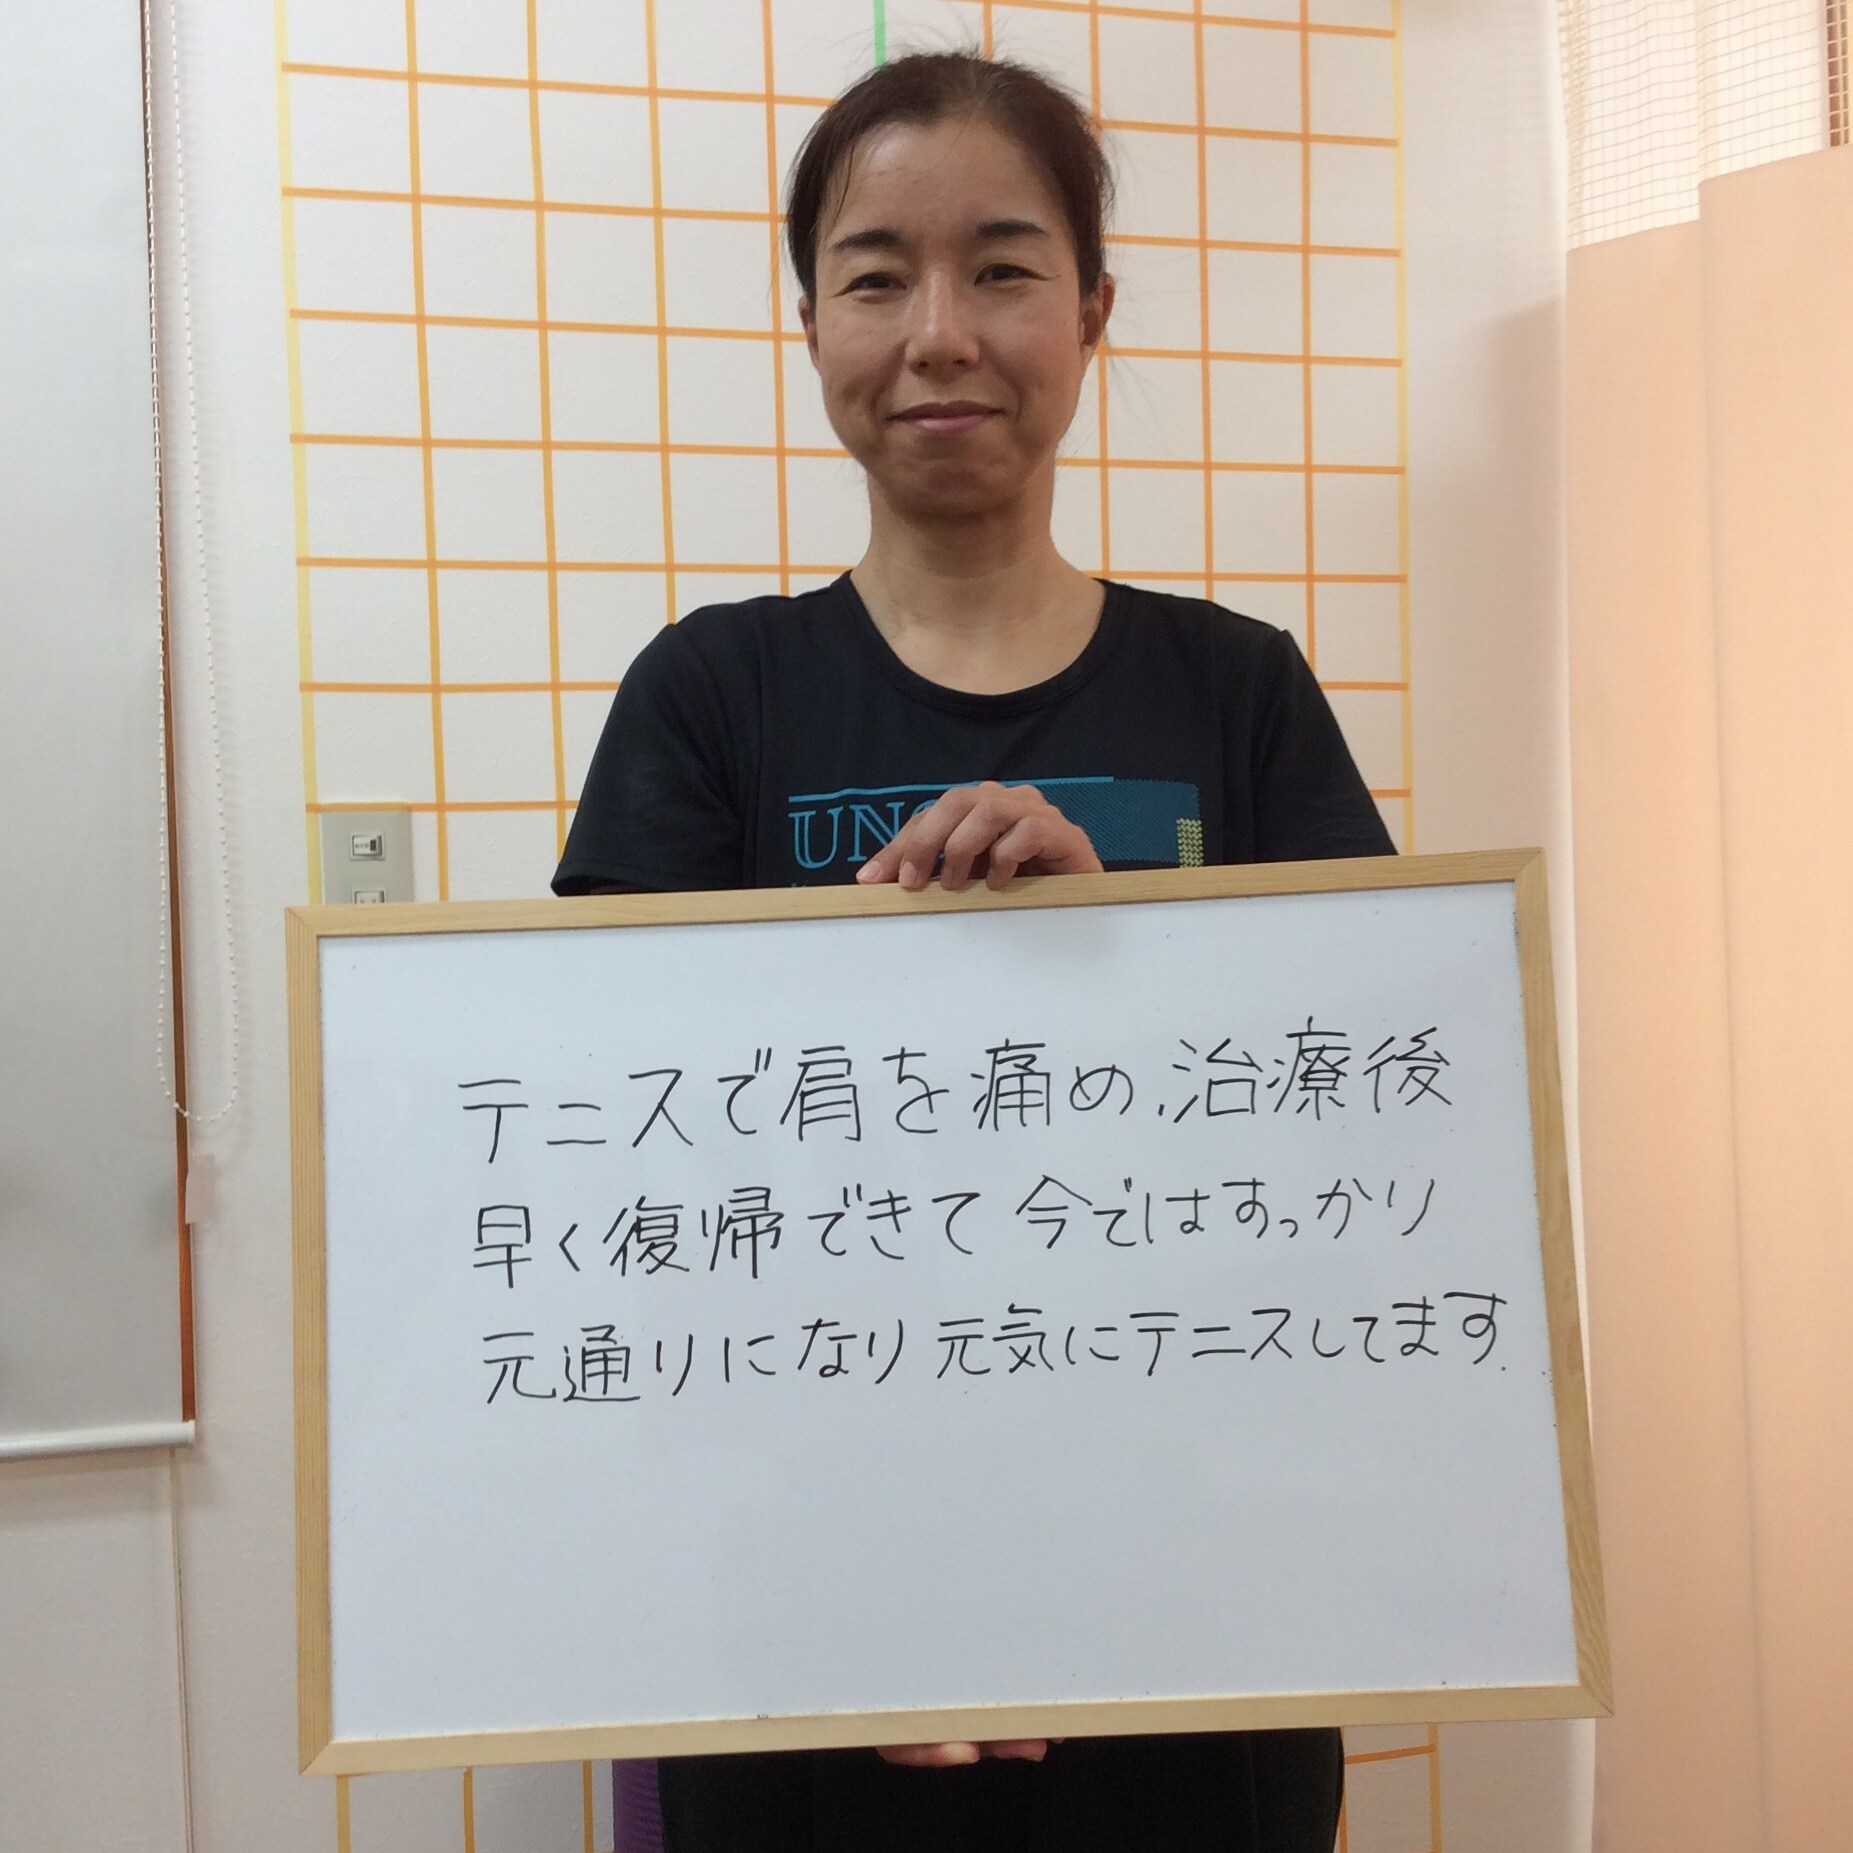 UN
テニスで肩を痛め、治療後
早く復帰できて今ではすっかり
元通りになり元気にテニスしてます.